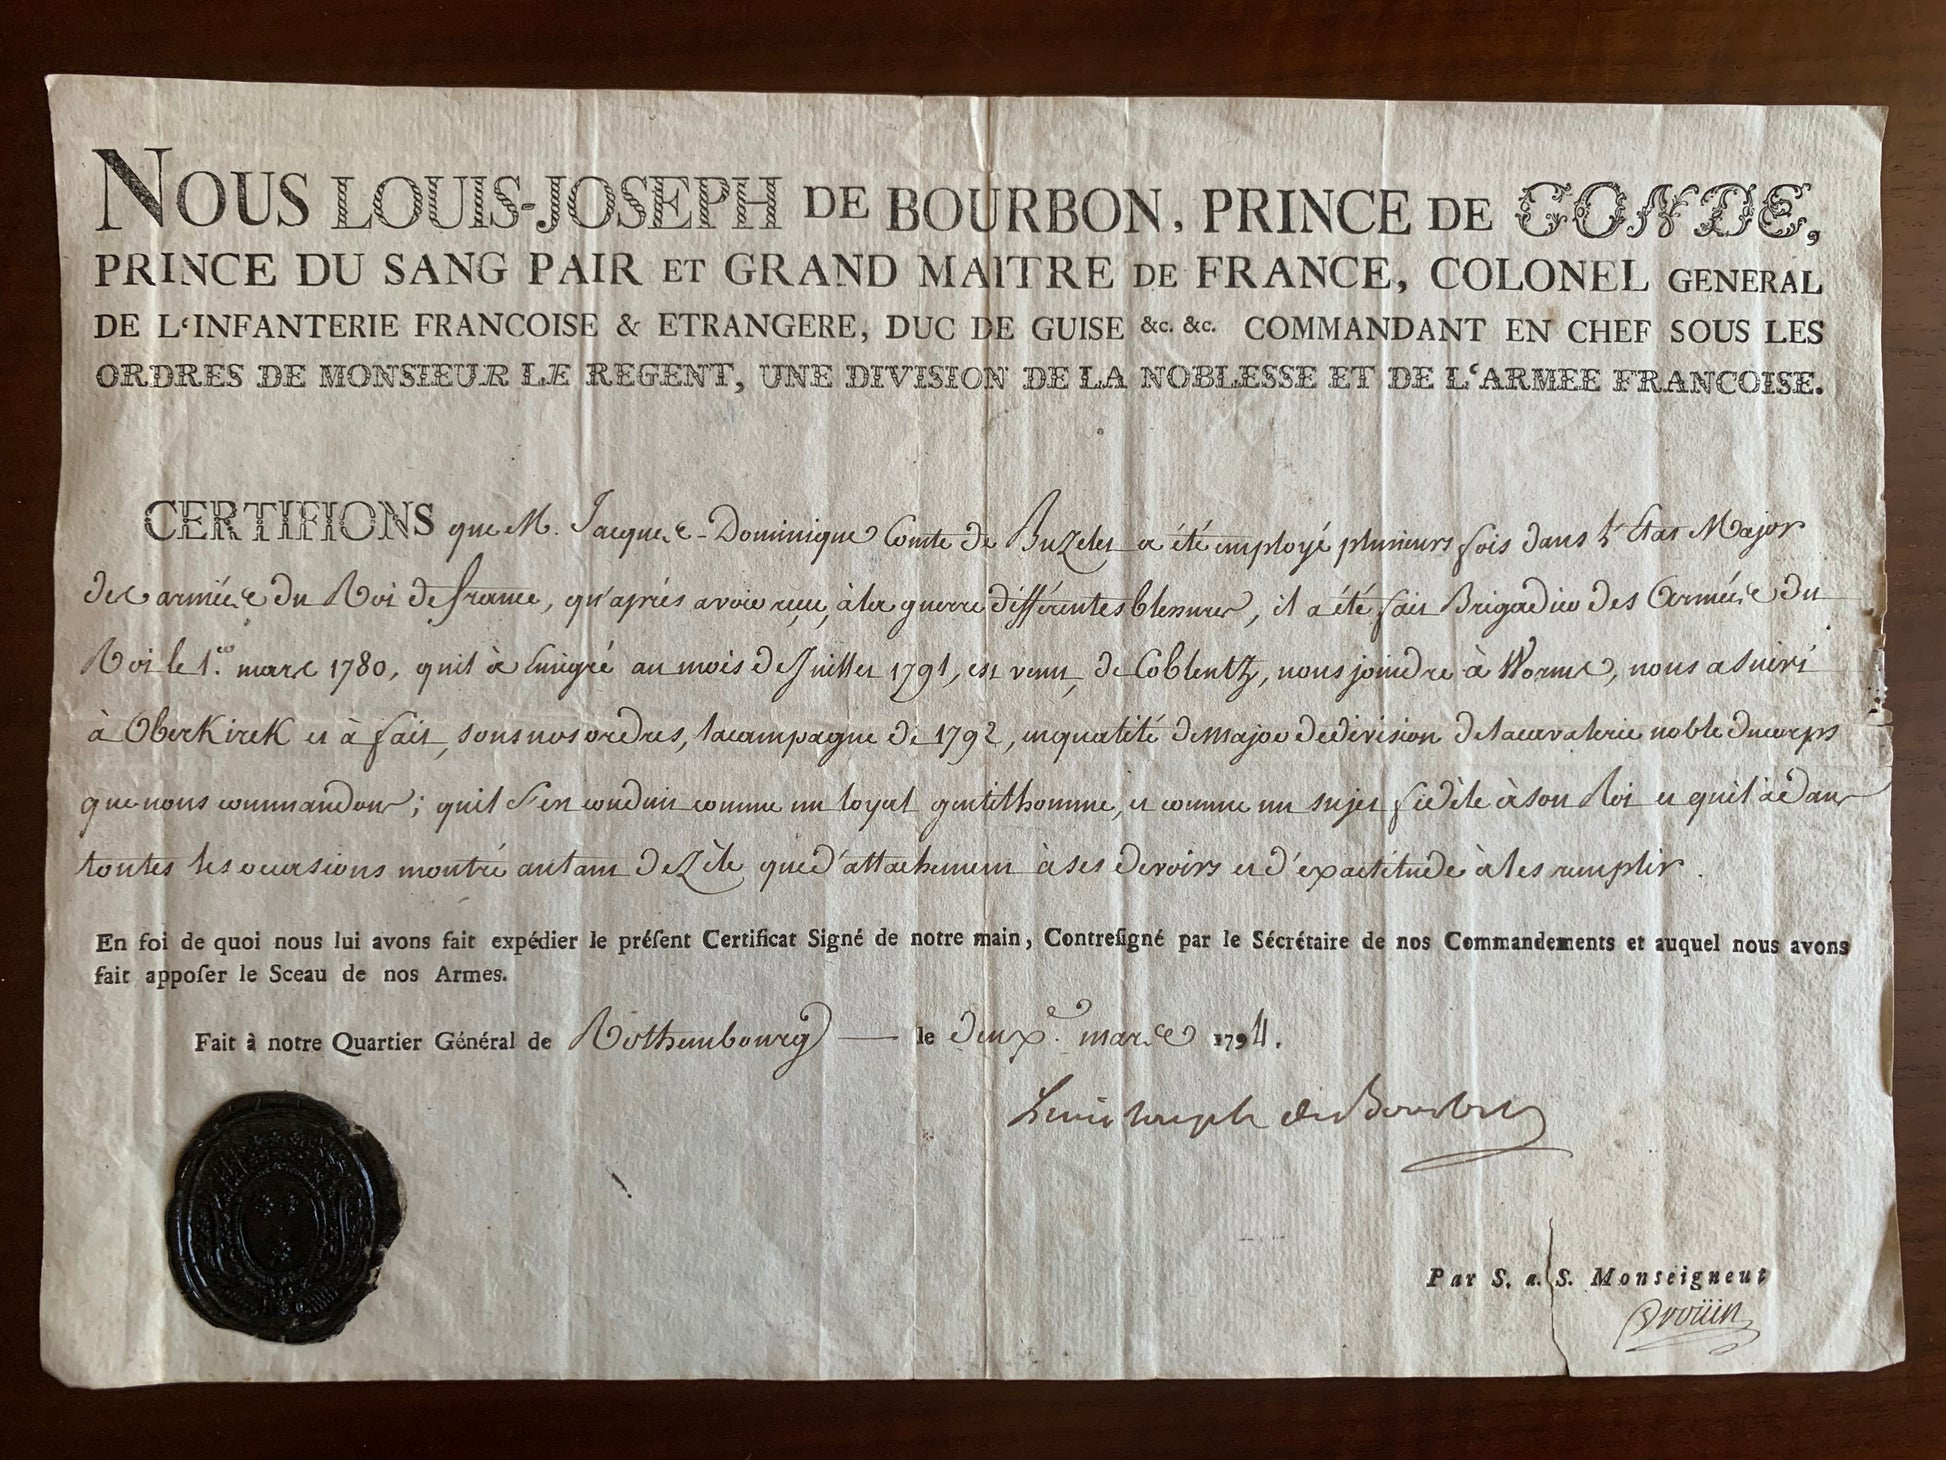 NOUS LOUIS-JOSEPH DE BOURBON, PRINCE DE CONDE,
PRINCE DU SANG PAIR ET GRAND MAITRE DE FRANCE, COLONEL GENERAL
DE L'INFANTERIE FRANCOISE & ETRANGERE, DUC DE GUISE &c. &c. COMMANDANT EN CHEF SOUS LES
ORDRES DE MONSIEUR LE REGENT, UNE DIVISION DE LA NOBLESSE ET DE L'ARMEE FRANCOISE.
CERTIFIONS que M. Jacques-Dominique Comte de Buzelet a été employé plusieurs fois dans l'Etat Major
des armées du Roi de france, qu'aprés avoir reçu, à la guerre différentes blessures, il a été fait Brigadier des Armées du
Roi le 1.er mars 1780, quil à Emigré au mois de Juillet 1791, est venu, de Coblentz, nous joindre à Worms, nous a suivi
à OberKirck et à fait, sous nos ordres, la campagne de 1792, en qualité de Major de division de la cavalerie noble du corps
que nous commandons; quil s'en conduit comme un loyal gentilhomme, et comme un sujet fidèle à son Roi et quil à dans
toutes les occasions montré autant de Zèle que d'attachement à ses devoirs et d'exactitude à les remplir.
En foi de quoi nous lui avons fait expédier le préſent Certificat Signé de notre main, Contreſigné par le Sécrétaire de nos Commandements et auquel nous avons
fait appoſer le Sceau de nos Armes.
Fait à notre Quartier Général de Rothembourg — le deux.e mars 1794.
Louis Joseph de Bourbon
Par S. a. S. Monseigneur
Drouin